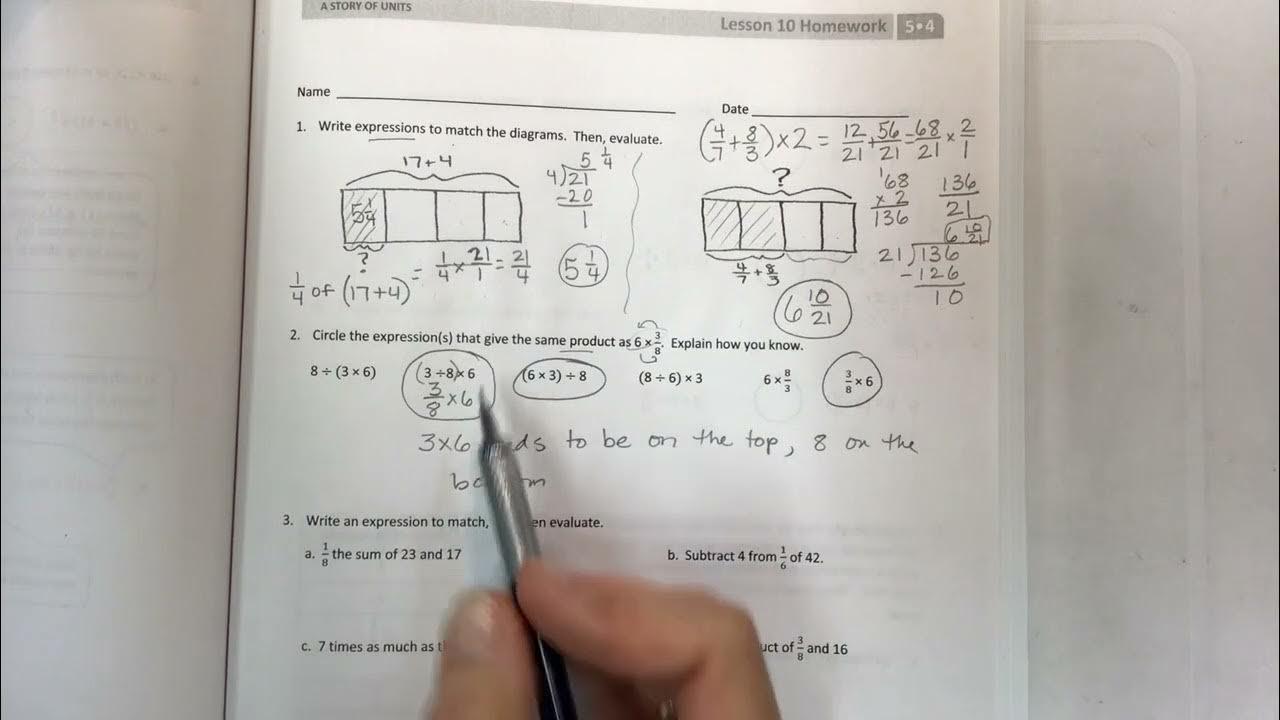 A STORY OF UNITS
Lesson 10 Homework 5•4
Name
Date
1. Write expressions to match the diagrams. Then, evaluate.
17+4
5 1/4
?
1/4 of (17+4)
= 1/4 × 21/1 = 21/4
5 1/4
4)21
-20
1
5 1/4
(4/7 + 8/3) × 2 = 12/21 + 56/21 = 68/21 × 2/1
?
4/7 + 8/3
1
68
× 2
136
136/21
6 10/21
21)136
-126
10
6 10/21
2. Circle the expression(s) that give the same product as 6 × 3/8. Explain how you know.
8 ÷ (3 × 6) (3 ÷ 8) × 6 (6 × 3) ÷ 8 (8 ÷ 6) × 3 6 × 8/3 3/8 × 6
3/8 × 6
3×6 to be on the top, 8 on the
3. Write an expression to match, evaluate.
a. 1/8 the sum of 23 and 17 b. Subtract 4 from 1/6 of 42.
c. 7 times as much as of 3/8 and 16